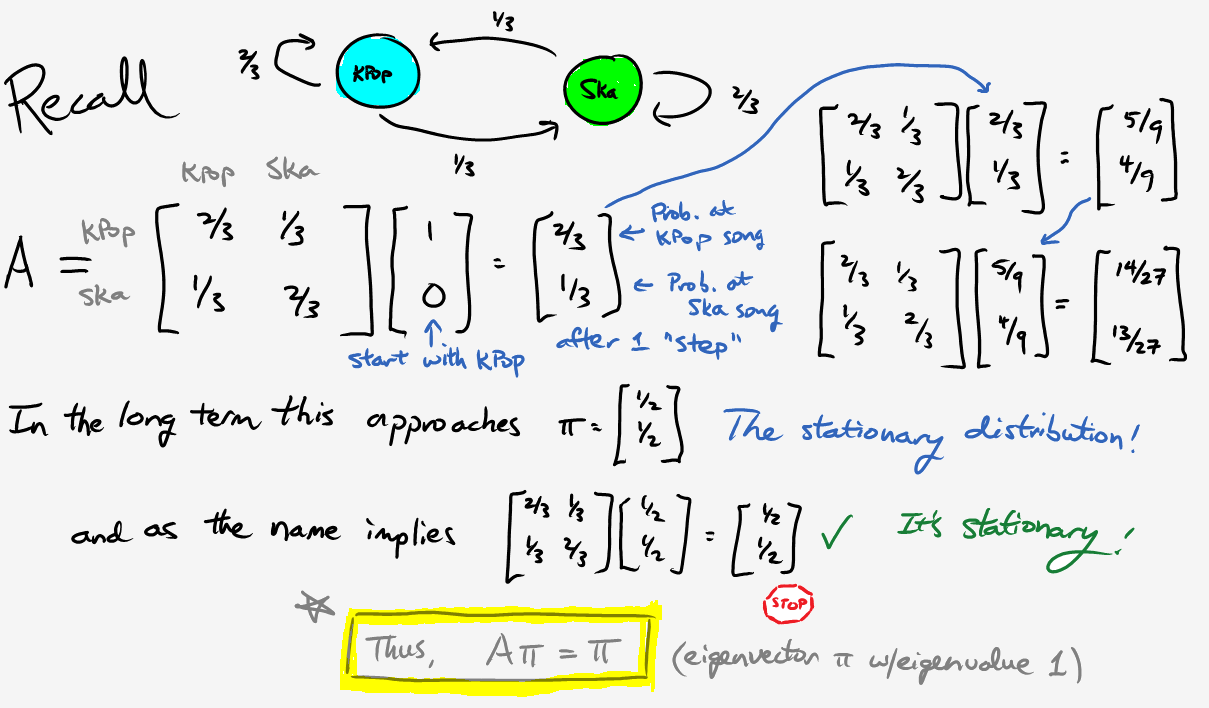 Recall
2/3 KPop 1/3 Ska 2/3
1/3
KPop Ska
A = KPop [2/3 1/3] [1] = [2/3] ← Prob. at KPop song
Ska [1/3 2/3] [0] [1/3] ← Prob. at Ska song
↑ start with KPop
after 1 "step"
[2/3 1/3] [2/3] = [5/9]
[1/3 2/3] [1/3] [4/9]
[2/3 1/3] [5/9] = [14/27]
[1/3 2/3] [4/9] [13/27]
In the long term this approaches π = [1/2 1/2] The stationary distribution!
and as the name implies [2/3 1/3] [1/2] = [1/2] ✓ It's stationary!
[1/3 2/3] [1/2] [1/2]
STOP
Thus, Aπ = π (eigenvector π w/eigenvalue 1)